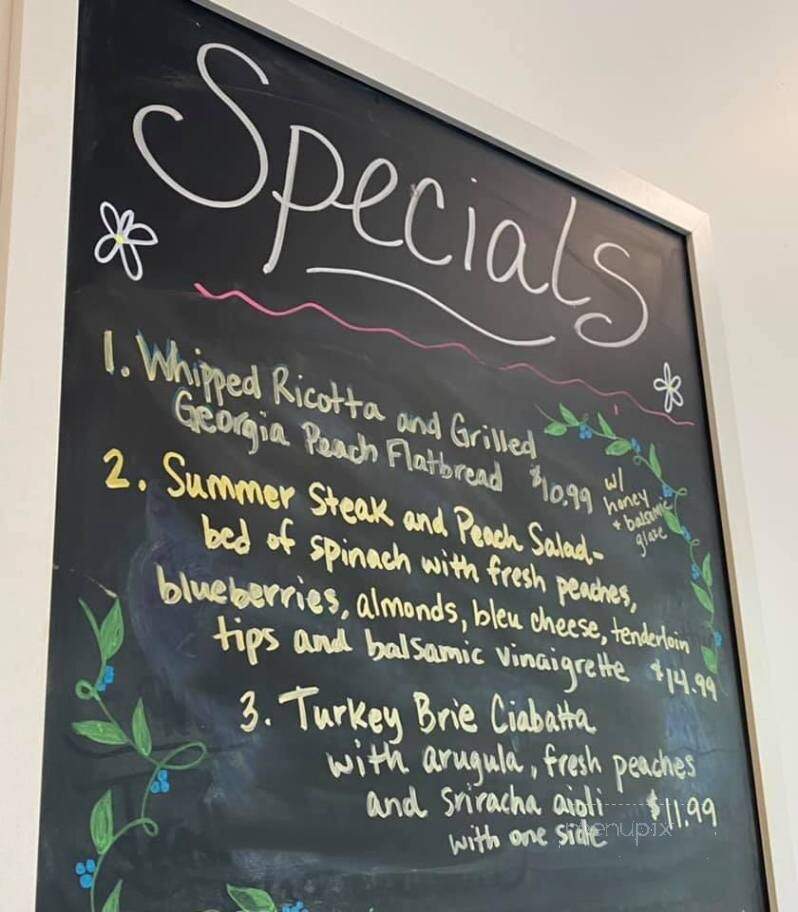 Specials
1. Whipped Ricotta and Grilled
Georgia Peach Flatbread $10.99
w/
honey
+ balsamic
glaze
2. Summer Steak and Peach Salad-
bed of spinach with fresh peaches,
blueberries, almonds, bleu cheese, tenderloin
tips and balsamic vinaigrette $14.99
3. Turkey Brie Ciabatta
with arugula, fresh peaches
and sriracha aioli $11.99
with one side
menupix